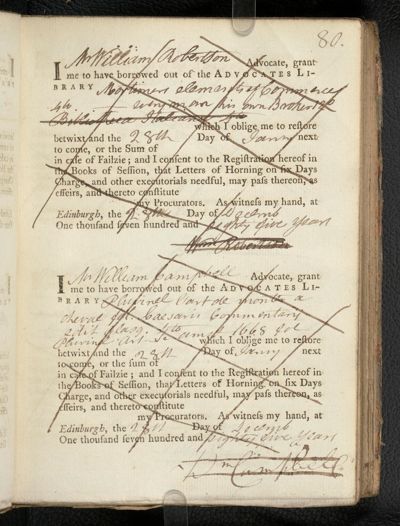 80.
I Mr William Robertson Advocate, grant
me to have borrowed out of the ADVOCATES LI-
BRARY Mortimers elements of Commerce
4to. every man his own Broker
Bibliotheca 4to
which I oblige me to restore
betwixt and the 28th Day of Janry next
to come, or the Sum of
in case of Failzie; and I consent to the Registration hereof in
the Books of Session, that Letters of Horning on six Days
Charge, and other executorials needful, may pass thereon, as
effeirs, and thereto constitute
my Procurators. As witness my hand, at
Edinburgh, the 28th Day of Decemb
One thousand seven hundred and Eighty five years
Robertson
I Mr William Campbell Advocate, grant
me to have borrowed out of the ADVOCATES LI-
BRARY Pluvinel L'art de monter a
cheval fol. Caesaris Commentary
edit 4to 1668
Pluvinel which I oblige me to restore
betwixt and the 28th Day of Janry next
to come, or the Sum of
in case of Failzie; and I consent to the Registration hereof in
the Books of Session, that Letters of Horning on six Days
Charge, and other executorials needful, may pass thereon, as
effeirs, and thereto constitute
my Procurators. As witness my hand, at
Edinburgh, the 28th Day of Decemb
One thousand seven hundred and Eighty five years
Wm Campbell